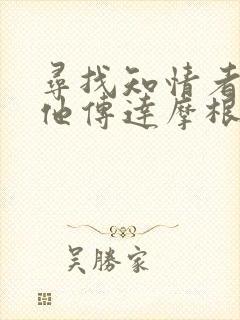 尋找知情者
他傳達摩根
吳勝家